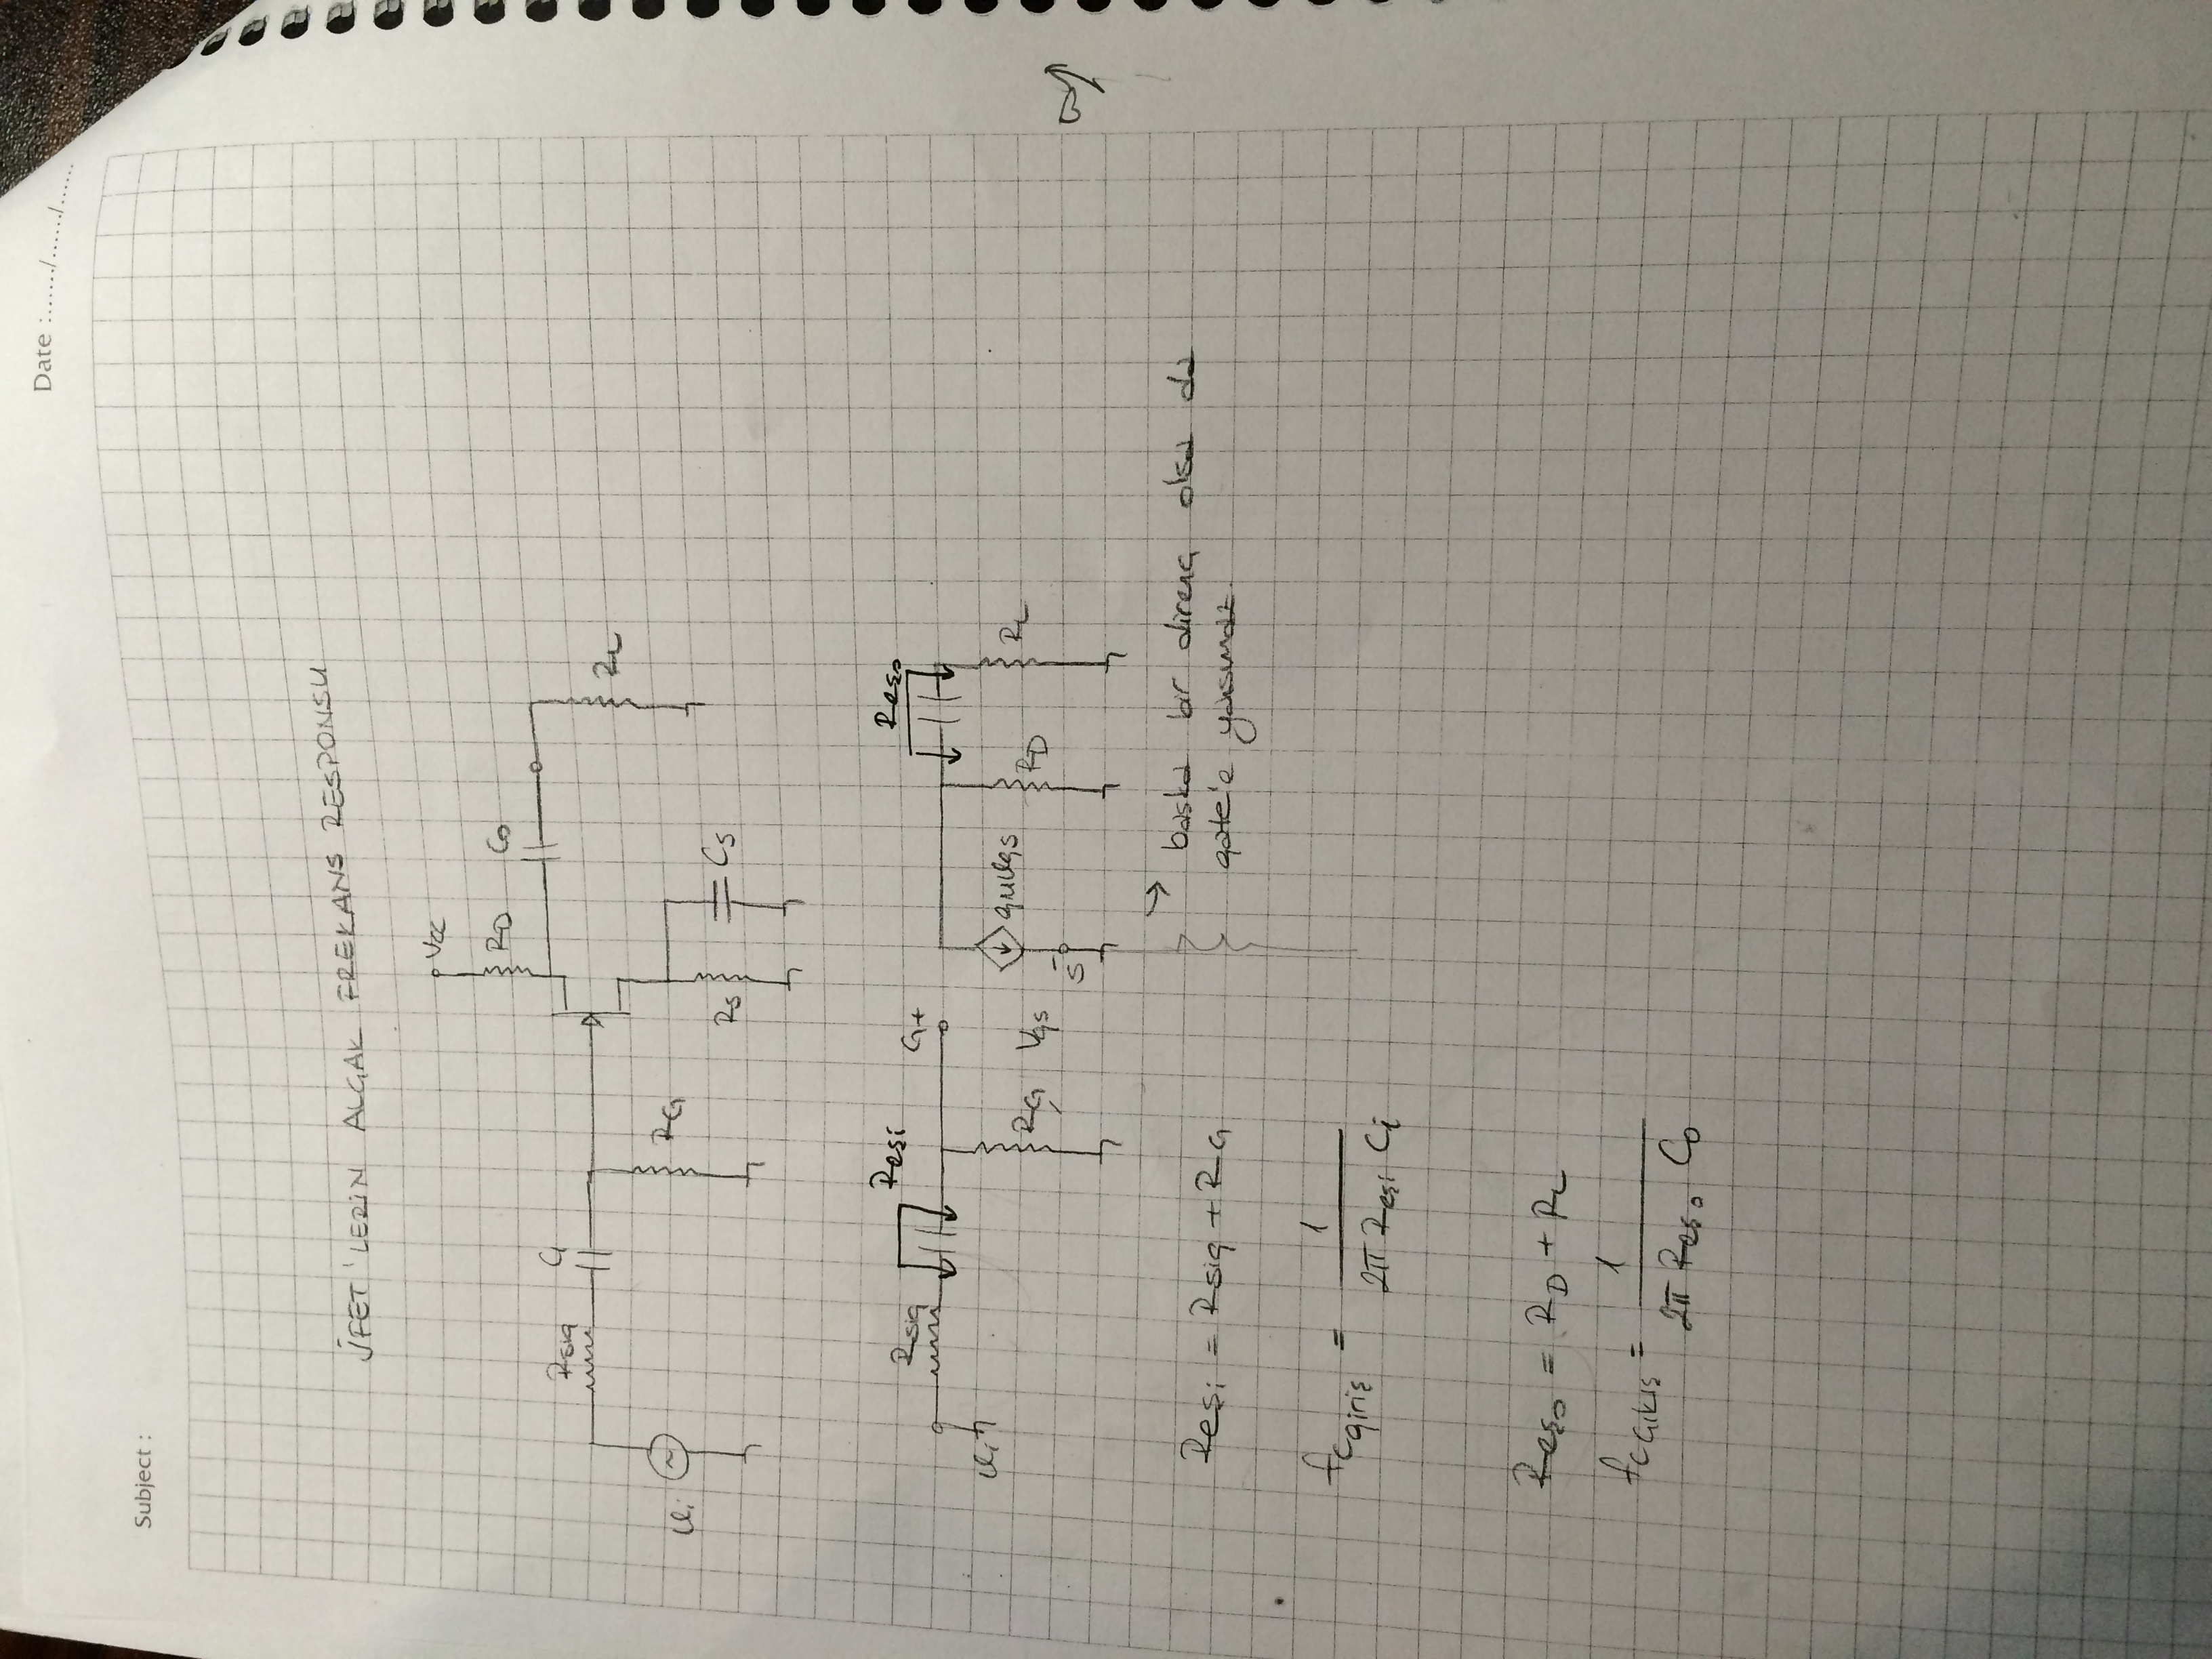 Date :....../....../......
Subject :
JFET'LERİN ALÇAK FREKANS RESPONSU
Vcc
RD
Co
Rsig
Ci
ZL
RG
Vi
RS
CS
Reşi
Reşo
Rsig
G+
Vi
gmVgs
RG
Vgs
RD
RL
S-
başka bir direnç olsa da
gate'e yansımaz.
Reşi = Rsig + RG
fcgiriş = 1 / 2π Reşi Ci
Reşo = RD + RL
fcçıkış = 1 / 2π Reşo Co